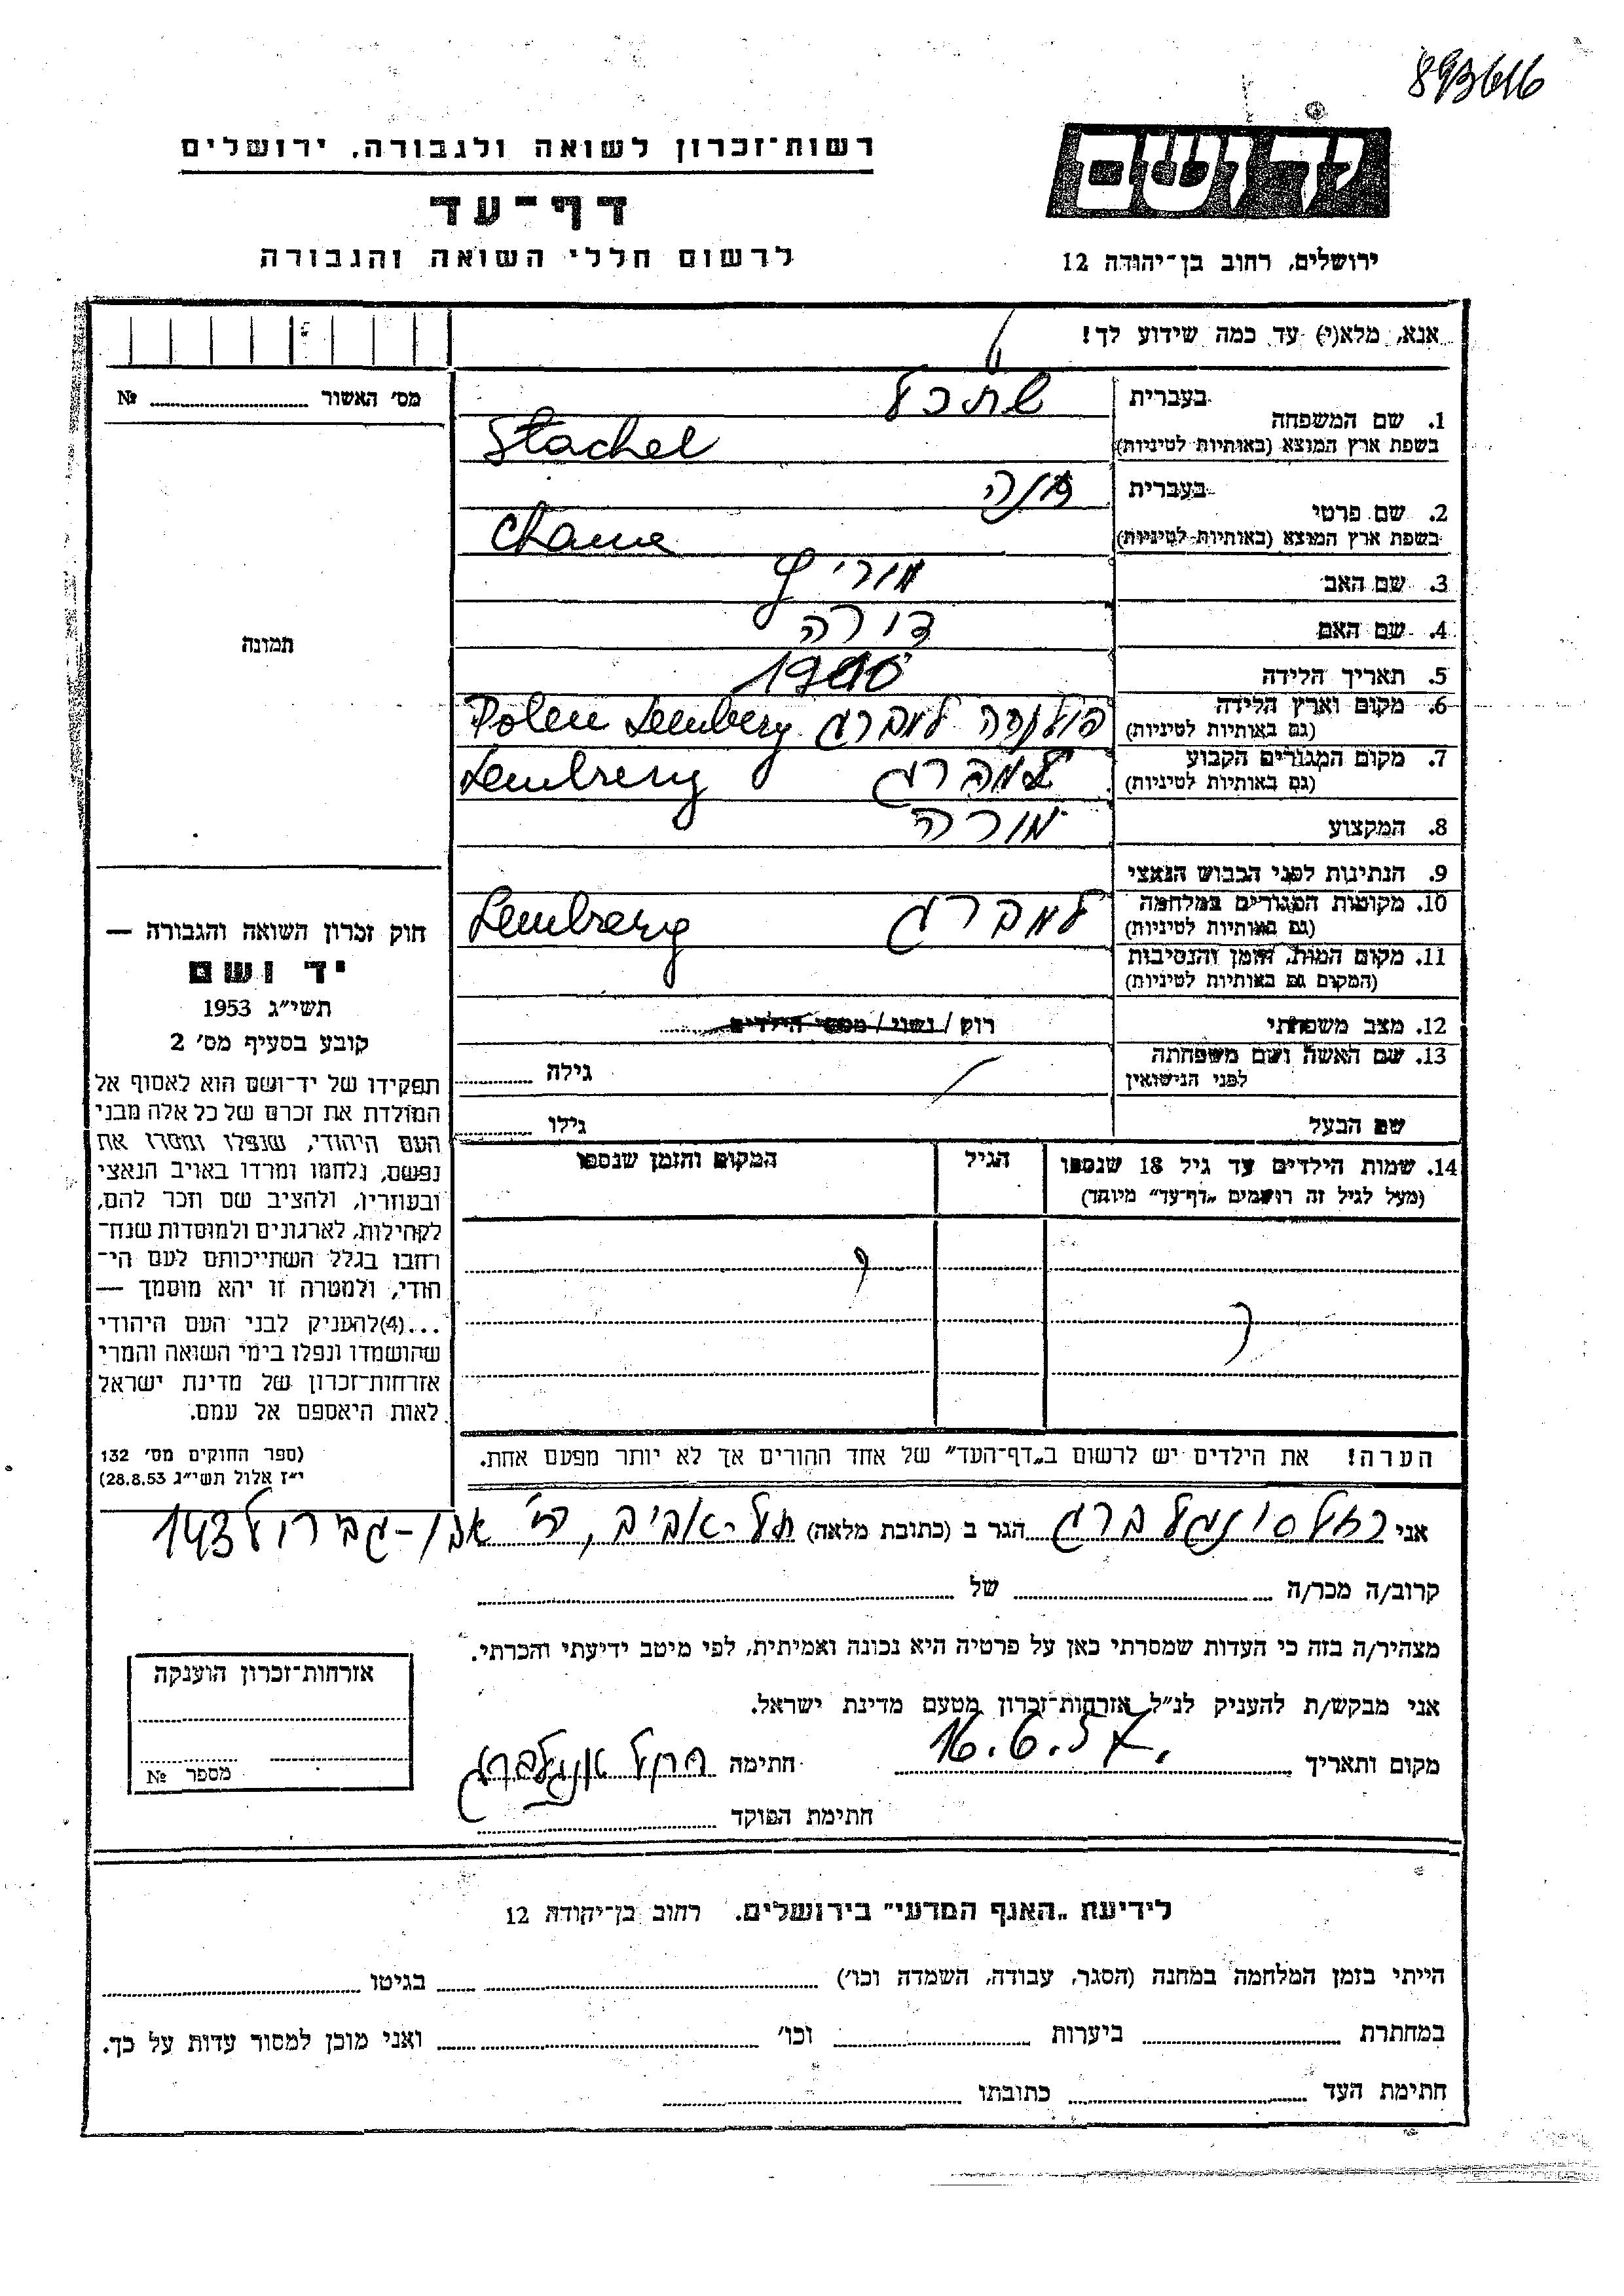 893616
יד ושם
רשות־זכרון לשואה ולגבורה, ירושלים
דף־עד
לרשום חללי השואה והגבורה
ירושלים, רחוב בן־יהודה 12
אנא, מלא(י) עד כמה שידוע לך!
מס' האשור № 
1. שם המשפחה
בעברית שתכל
בשפת ארץ המוצא (באותיות לטיניות) Stachel
2. שם פרטי
בעברית חנה
בשפת ארץ המוצא (באותיות לטיניות) Chane
3. שם האב מוריץ
4. שם האם דורה
תמונה
5. תאריך הלידה
6. מקום וארץ הלידה
(גם באותיות לטיניות) למברג Polen Lemberg
7. מקום המגורים הקבוע
(גם באותיות לטיניות) למברג Lemberg
8. המקצוע מורה
9. הנתינות לפני הכבוש הנאצי
10. מקומות המגורים במלחמה
(גם באותיות לטיניות) למברג Lemberg
11. מקום המות, הזמן והנסיבות
(המקום גם באותיות לטיניות)
12. מצב משפחתי רווק / נשוי / מספר הילדים
13. שם האשה ושם משפחתה
לפני הנישואין גילה
שם הבעל גילו
14. שמות הילדים עד גיל 18 שנספו
(מעל לגיל זה רושמים „דף־עד" מיוחד)
הגיל
המקום והזמן שנספו
הערה! את הילדים יש לרשום ב„דף־העד" של אחד ההורים אך לא יותר מפעם אחת.
חוק זכרון השואה והגבורה —
יד ושם
תשי"ג 1953
קובע בסעיף מס' 2
תפקידו של יד־ושם הוא לאסוף אל
המולדת את זכרם של כל אלה מבני
העם היהודי, שנפלו ומסרו את
נפשם, נלחמו ומרדו באויב הנאצי
ובעוזריו, ולהציב שם וזכר להם,
לקהילות, לארגונים ולמוסדות שנח־
רחבו בגלל השתייכותם לעם הי־
הודי, ולמטרה זו יהא מוסמך —
...(4)להעניק לבני העם היהודי
שהושמדו ונפלו בימי השואה והמרי
אזרחות־זכרון של מדינת ישראל
לאות היאספם אל עמם.
(ספר החוקים מס' 132
י"ז אלול תשי"ג 28.8.53)
אני הגר ב (כתובת מלאה) תל־אביב, אבן־גבירול 143
קרוב/ה מכר/ה של
מצהיר/ה בזה כי העדות שמסרתי כאן על פרטיה היא נכונה ואמיתית, לפי מיטב ידיעתי והכרתי.
אני מבקש/ת להעניק לנ"ל אזרחות־זכרון מטעם מדינת ישראל.
מקום ותאריך 16.6.57. חתימה
חתימת הפוקד
אזרחות־זכרון הוענקה
מספר №
לידיעת „האגף המדעי" בירושלים. רחוב בן־יהודה 12
הייתי בזמן המלחמה במחנה (הסגר, עבודה, השמדה וכו') בגיטו
במחתרת ביערות וכו' ואני מוכן למסור עדות על כך.
חתימת העד כתובתו